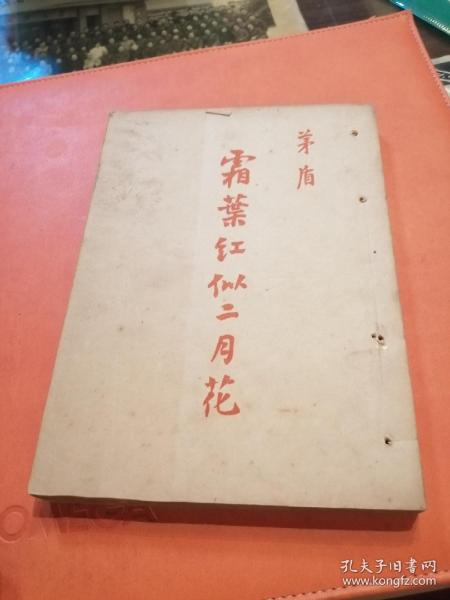 茅盾
霜葉红似二月花
孔夫子旧书网
www.kongfz.com